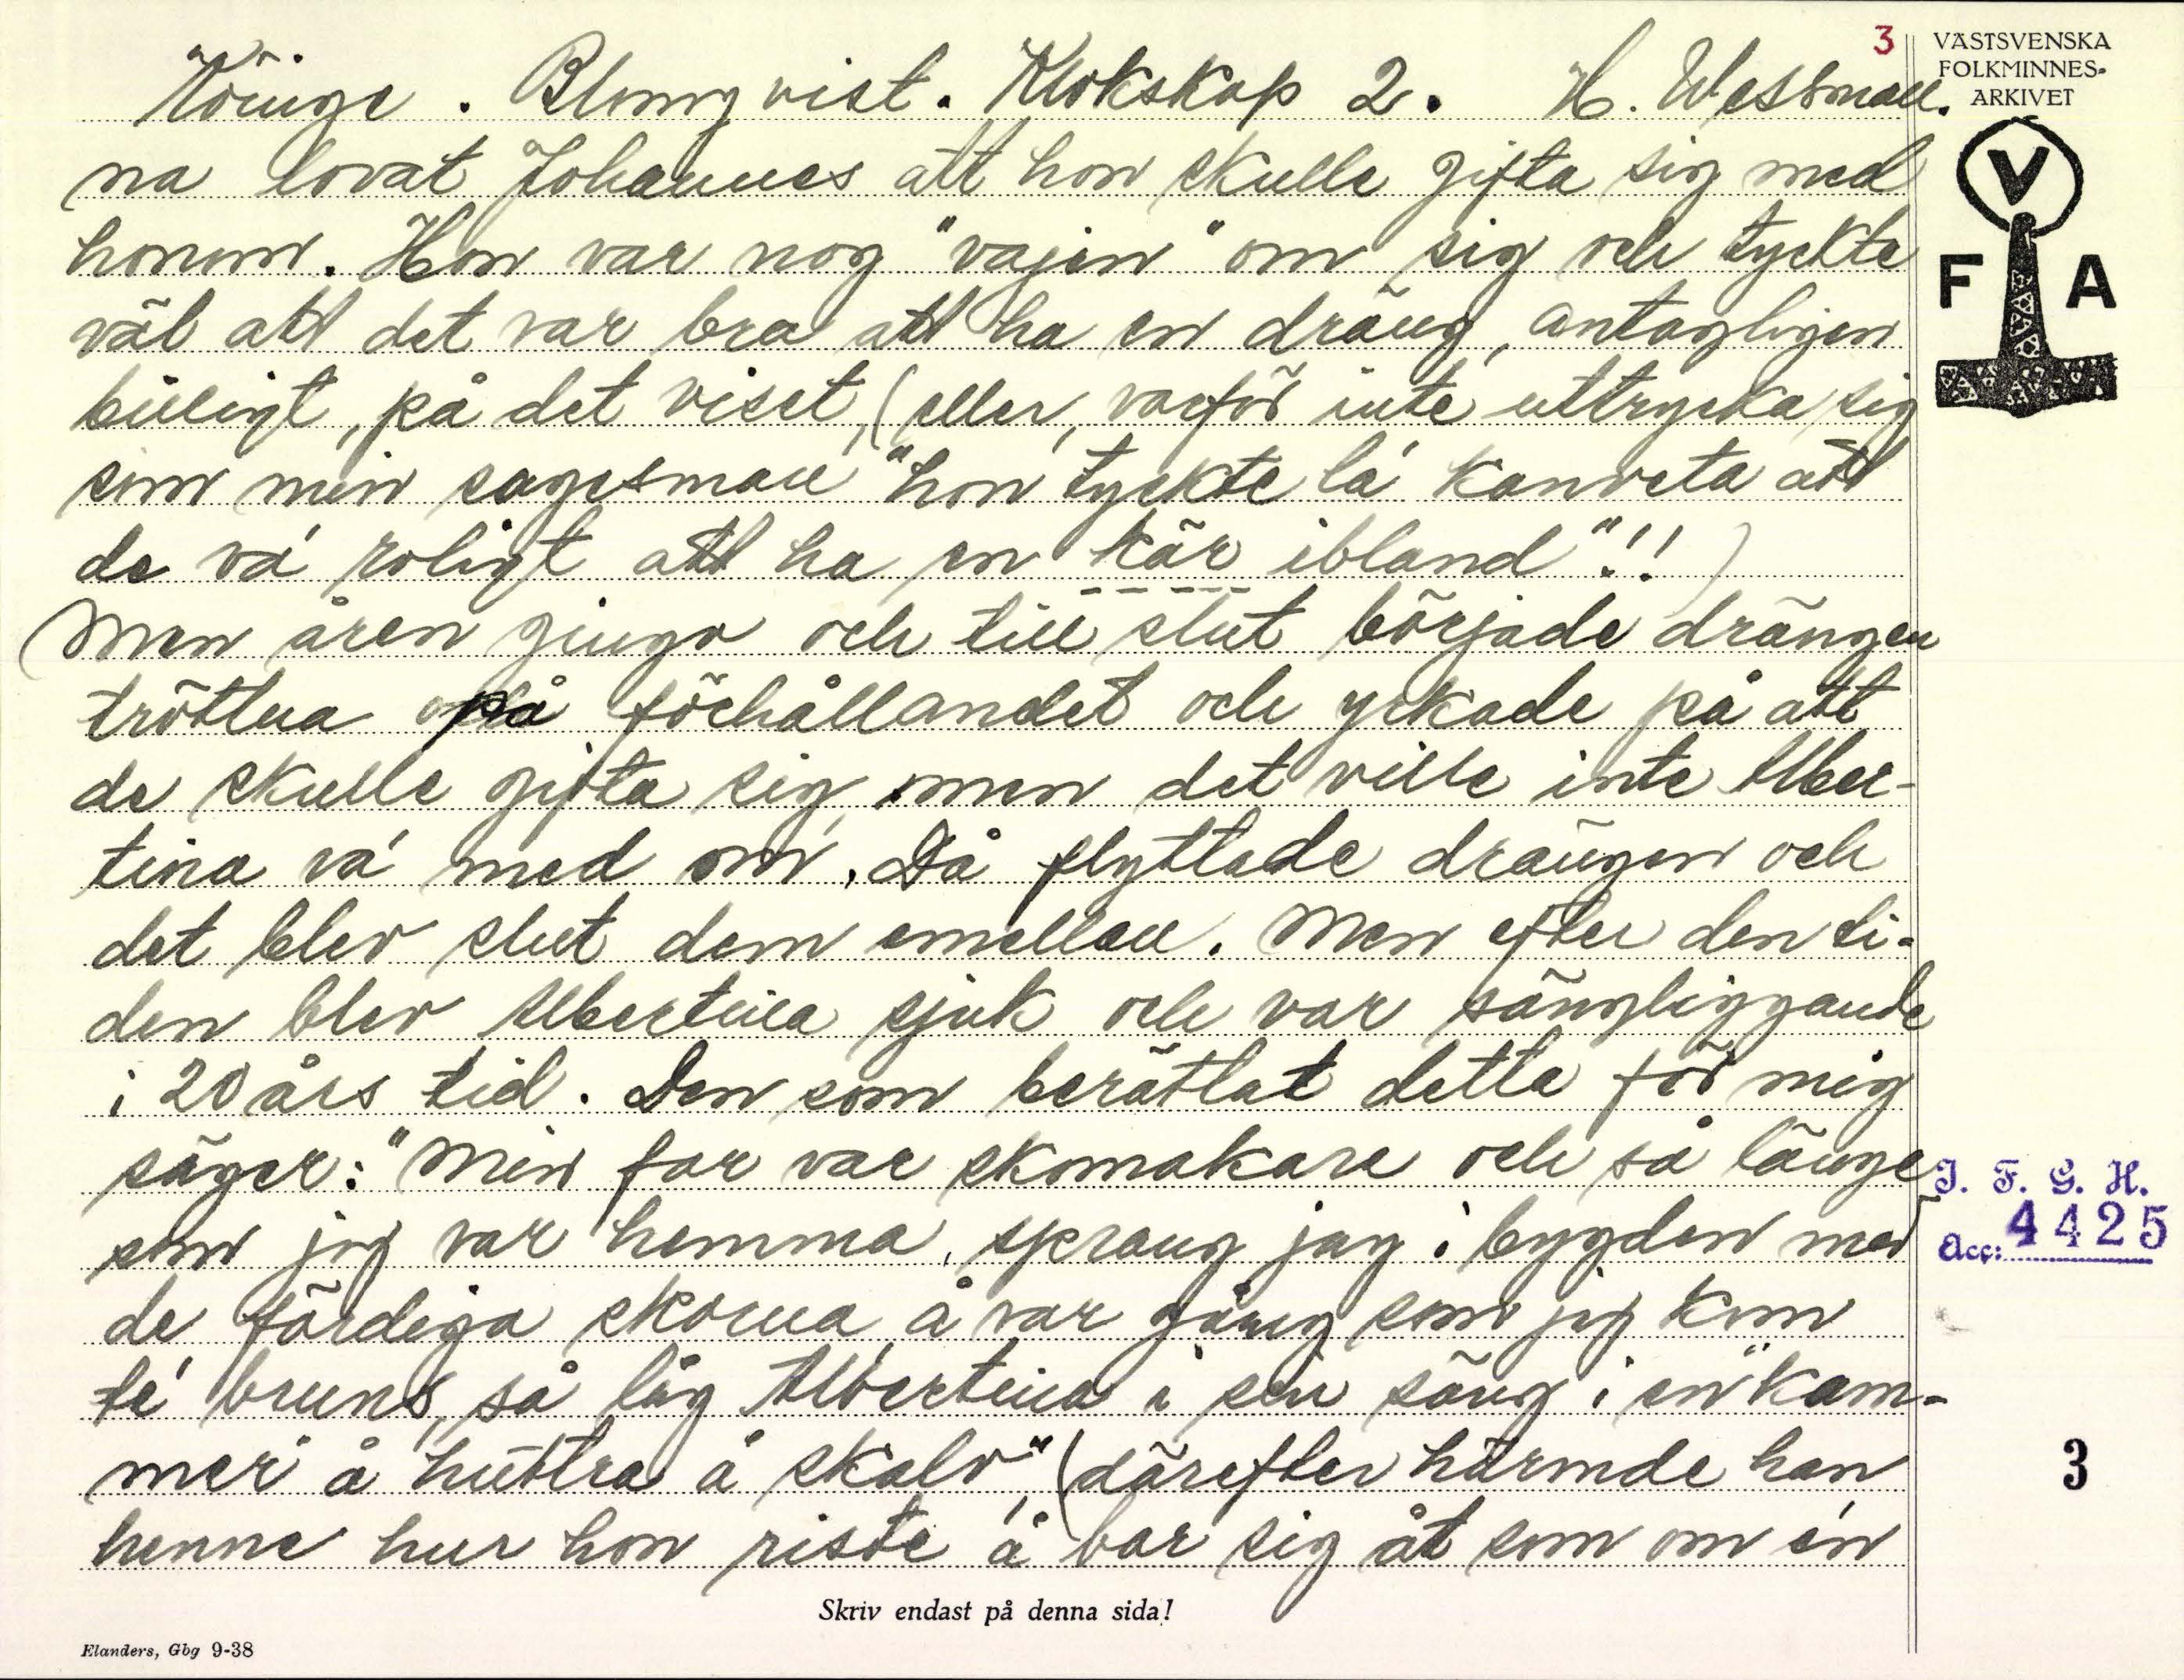 3
VÄSTSVENSKA
FOLKMINNES-
ARKIVET
Köinge. Blomqvist. Klokskap 2. H. Wessman.
na lovat Johannes att hon skulle gifta sig med
honom. Hon var nog "vajen" om sig och tyckte
väl att det var bra att ha en dräng, antagligen
billigt, på det viset, (eller, varför inte uttrycka sig
som min sagesman "hon tyckte la' kanveta att
de va' roligt att ha en kär ibland"!!)
Men åren gingo och till slut började drängen
tröttna på förhållandet och yrkade på att
de skulle gifta sig, men det ville inte Alber-
tina va' med om. Då flyttade drängen och
det blev slut dem emellan. Men efter den ti-
den blev Albertina sjuk och var sängliggande
i 20 års tid. Den som berättat detta för mig
säger: "Min far var skomakare och så länge
som jag var hemma, sprang jag i bygden med
de färdiga skorna å var gång som jag kom
te' bruns, så låg Albertina i sin säng i en "kam-
mer" å huttra å skalv", (därefter härmde han
henne hur hon riste å bar sig åt som om en
V
F A
I. F. G. H.
Acc: 4425
3
Skriv endast på denna sida!
Elanders, Gbg 9-38